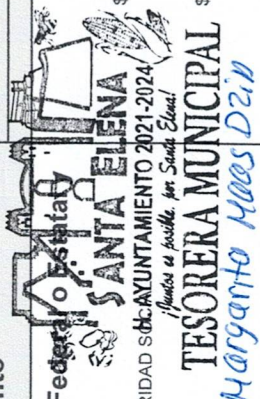 Federal o Estatal
SANTA ELENA
RIDAD S
H. AYUNTAMIENTO 2021-2024
¡Juntos es posible, por Santa Elena!
TESORERA MUNICIPAL
Margarita Maas Dzib